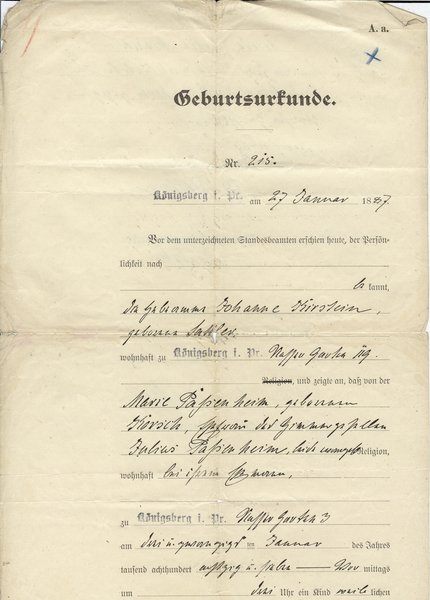 A. a.
Geburtsurkunde.
Nr. 215.
Königsberg i. Pr. am 27 Januar 1887.
Vor dem unterzeichneten Standesbeamten erschien heute, der Persön-
lichkeit nach
be kannt,
die Hebeamme Johanne Kirstein,
geborene
wohnhaft zu Königsberg i. Pr. Nasser Garten
Religion, und zeigte an, daß von der
Marie Passenheim, geborenen
Korsch, Ehefrau des Zimmergesellen
Julius Passenheim, beide evangel. Religion,
wohnhaft bei ihrem Ehemann,
zu Königsberg i. Pr. Nasser Garten 3
am drei u. zwanzigst ten Januar des Jahres
tausend achthundert achtzig u. sieben Vor mittags
um drei Uhr ein Kind weib lichen